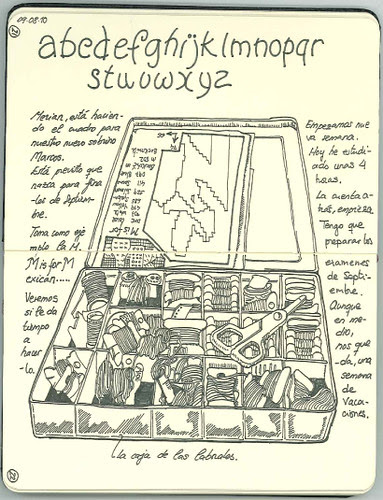 09.08.10
22
abcdefghijklmnopqr
stuvwxyz
Merian, está hacien-
do el cuadro para
nuestro nuevo sobrino
Marcos.
Está previsto que
nazca para fina-
les de Septiem-
bre.
Toma como ejem-
plo la M.
M is for M
exican....
Veremos
si le da
tiempo
a
hacer-
-lo.
M is for
Empezamos nue
va semana.
Hoy he estudi-
ado unas 4
horas.
La cuenta a-
trás, empieza.
Tengo que
preparar los
exámenes
de Septi-
embre.
Aunque
en me-
dio,
nos que-
-da, una
semana
de
Vaca-
ciones.
La caja de las labrales.